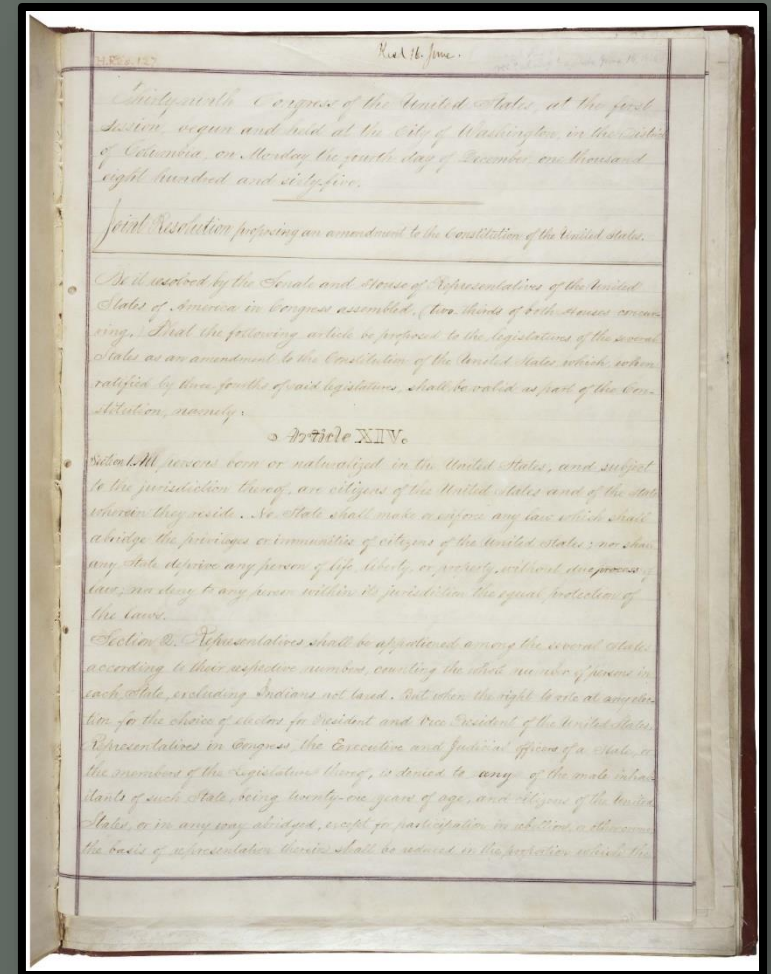 H.Res. 127
Recd 16. June.
Thirty-ninth Congress of the United States, at the first
session, begun and held at the City of Washington, in the District
of Columbia, on Monday the fourth day of December one thousand
eight hundred and sixty-five.
Joint Resolution proposing an amendment to the Constitution of the United States.
Be it resolved by the Senate and House of Representatives of the United
States of America in Congress assembled, (two-thirds of both Houses concur-
ring,) That the following article be proposed to the legislatures of the several
States as an amendment to the Constitution of the United States which, when
ratified by three-fourths of said legislatures, shall be valid as part of the Con-
stitution, namely:
Article XIV.
Section 1. All persons born or naturalized in the United States, and subject
to the jurisdiction thereof, are citizens of the United States and of the State
wherein they reside. No State shall make or enforce any law which shall
abridge the privileges or immunities of citizens of the United States; nor shall
any State deprive any person of life, liberty, or property, without due process of
law; nor deny to any person within its jurisdiction the equal protection of
the laws.
Section 2. Representatives shall be apportioned among the several States
according to their respective numbers, counting the whole number of persons in
each State, excluding Indians not taxed. But when the right to vote at any elec-
tion for the choice of electors for President and Vice President of the United States,
Representatives in Congress, the Executive and Judicial officers of a State, or
the members of the Legislature thereof, is denied to any of the male inhab-
itants of such State, being twenty-one years of age, and citizens of the United
States, or in any way abridged, except for participation in rebellion, or other crime,
the basis of representation therein shall be reduced in the proportion which the